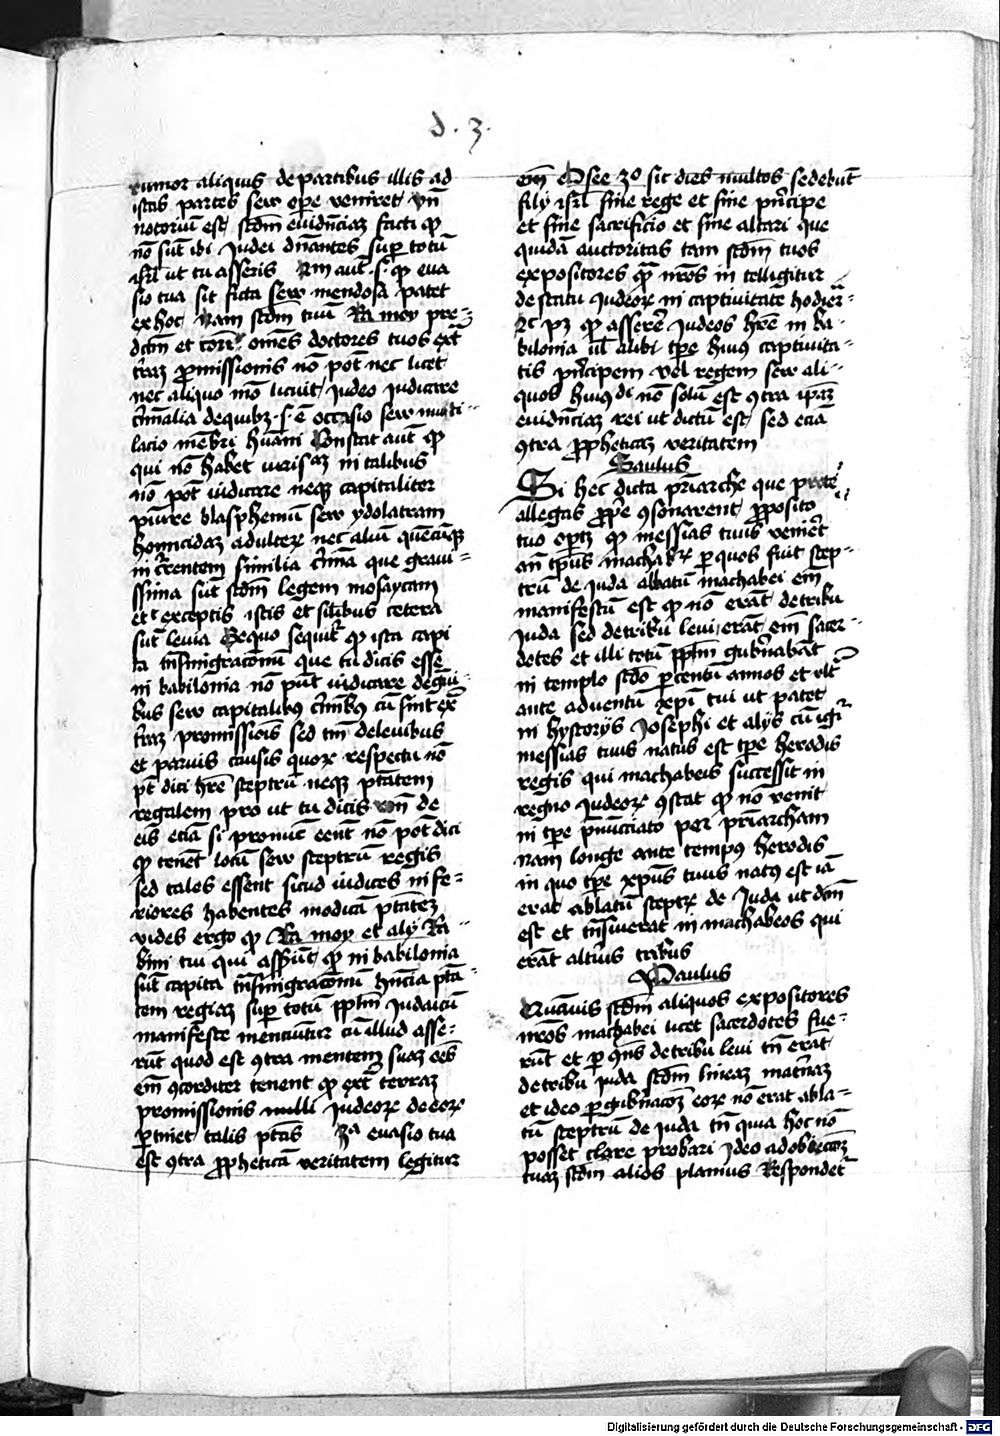 d. 3.
rumor aliquis de partibus illis ad
istas partes seu ope veniret vn̄
notoriū est scdm euidn̄ciaȝ facti qꝫ
nō sūt ibi Judei dn̄antes sup totū
isrl ut tu asseris Rm aut̄ .s. qꝫ eua
sio tua sit ficta seu mendosa patet
ex hoc Nam scdm tuū Ra moy pre
dcm et om̄es doctores tuos ext̄
trāȝ ꝓmissionis nō pōt nec licet
nec aliquo mō licuit Judeo Judicare
c̄mn̄alia de quibꝫ .s. ē occasio seu muti
lacio mēbri hūani Constat aut̄ qꝫ
qui nō habet in talibus
nō pōt iudicare neqꝫ capitaliter
punire blasphemū seu ydolatram
homicidaȝ adulterꝫ nec aliū quēcūqꝫ
similia c̄mn̄a que graui
ssima sūt scdm legem mosaycam
et exceptis istis et sil̄ibus cetera
sūt leuia Ex quo sequit̄ qꝫ ista capi
ta tn̄smigracōnū que tu dicis esse
in babilonia nō pn̄t iudicare de qui
bus seu capitalibꝫ c̄mn̄ibꝫ cū sint ex
trāȝ promissiōis sed tm̄ de leuibus
et paruis causis quoꝝ respectu nō
pt̄ dici hr̄e sceptrū neqꝫ ptātem
regalem pro ut tu dicis vn̄ de
eis etiā si eēnt nō pōt dici
qꝫ tenēt locū seu sceptrū regis
sed tales essent sicud iudices infe
riores habentes modicā ptāteȝ
vides ergo qꝫ Ra moy et alij Ra
bini tui qui asserūt qꝫ in babilonia
sūt capita tn̄smigracōnū hn̄cia ptā
tem regiaȝ sup totū pplm̄ Judaicū
manifeste menciūtur cū illud asse
rūt quod est ꝯtra mentem suaȝ oēs
em̄ ꝯcorditer tenent qꝫ ext̄ terraȝ
promissionis nulli Judeoꝝ de eoꝝ
ꝑtinet talis ptās 3a euasio tua
est ꝯtra ꝓpheticā veritatem legitur
em̄ Osee 3o sic dies multos sedebūt
filij isrl sine rege et sine pn̄cipe
et sine sacrificio et sine altari que
quidā auctoritas tam scdm tuos
expositores qꝫ nr̄os intelligitur
de statu Judeoꝝ in captiuitate hodier
pꝫ qꝫ asserē Judeos hr̄e in ba
bilonia ul̄ alibi tꝑe huiꝰ captiuita
tis pn̄cipem vel regem seu ali
quos huiꝰdi nō solū est ꝯtra ipaȝ
euidn̄ciaȝ rei ut dictū est sed eciā
ꝯtra ꝓpheticaȝ veritatem
Saulus
Si hec dicta pr̄iarche que
allegas ꝓprie ꝯsonarent ꝓposito
tuo oꝑtꝫ qꝫ messias tuus venīet
an̄ tꝑus machabeoꝝ ꝑ quos fuit scep
trū de iuda ablatū machabei em̄
manifestū est qꝫ nō erāt de tribu
Juda sed de tribu leui erāt em̄ sacer
dotes et illi totū pplm̄ gubn̄abāt
in templo scdo ꝑ centū annos et vlt̄
ante aduentū xpī tui ut patet
in hystorijs Josephi et alijs cū igr̄
messias tuus natus est tꝑe herodis
regis qui machabeis successit in
regno Judeoꝝ ꝯstat qꝫ nō venit
in tꝑe pn̄unciato per pr̄iarcham
nam longe ante tempꝰ herodis
in quo tꝑe xpūs tuus natꝰ est iā
erat ablatū sceptrꝫ de Juda ut dcm̄
est et tn̄siuerat in machabeos qui
erāt altiꝰ tribus
Paulus
Quāuis scdm aliquos expositores
nr̄os machabei licet sacerdotes fue
rūt et ꝑ ꝯn̄s de tribu leui tn̄ erāt
de tribu iuda scdm lineaȝ mat̄naȝ
et ideo ꝑ gubn̄acōeȝ eoꝝ nō erat abla
tū sceptrū de iuda tn̄ quia hoc nō
posset clare probari Ideo ad obiectōeȝ
tuaȝ scdm alios planius Respondet̄
Digitalisierung gefördert durch die Deutsche Forschungsgemeinschaft - DFG